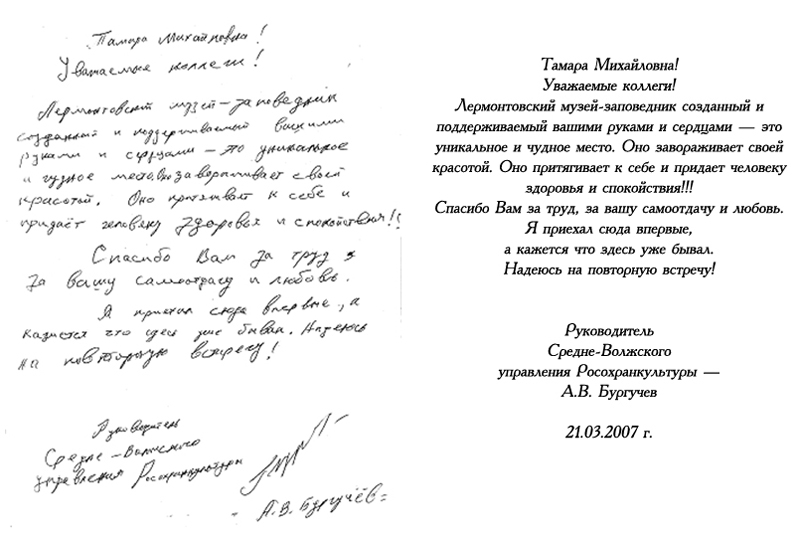 Тамара Михайловна!
Уважаемые коллеги!
Лермонтовский музей-заповедник
созданный и поддерживаемый вашими
руками и сердцами – это уникальное
и чудное место. Оно завораживает своей
красотой. Оно притягивает к себе и
придаёт человеку здоровья и спокойствия!!!
Спасибо Вам за труд,
за вашу самоотдачу и любовь.
Я приехал сюда впервые, а
кажется что здесь уже бывал. Надеюсь
на повторную встречу!
Руководитель
Средне-Волжского
управления Росохранкультуры
А.В. Бургучёв
Тамара Михайловна!
Уважаемые коллеги!
Лермонтовский музей-заповедник созданный и
поддерживаемый вашими руками и сердцами — это
уникальное и чудное место. Оно завораживает своей
красотой. Оно притягивает к себе и придает человеку
здоровья и спокойствия!!!
Спасибо Вам за труд, за вашу самоотдачу и любовь.
Я приехал сюда впервые,
а кажется что здесь уже бывал.
Надеюсь на повторную встречу!
Руководитель
Средне-Волжского
управления Росохранкультуры —
А.В. Бургучев
21.03.2007 г.